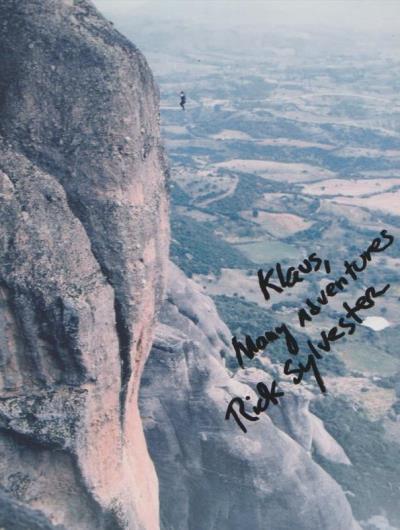 Klaus,
Many Adventures
Rick Sylvester